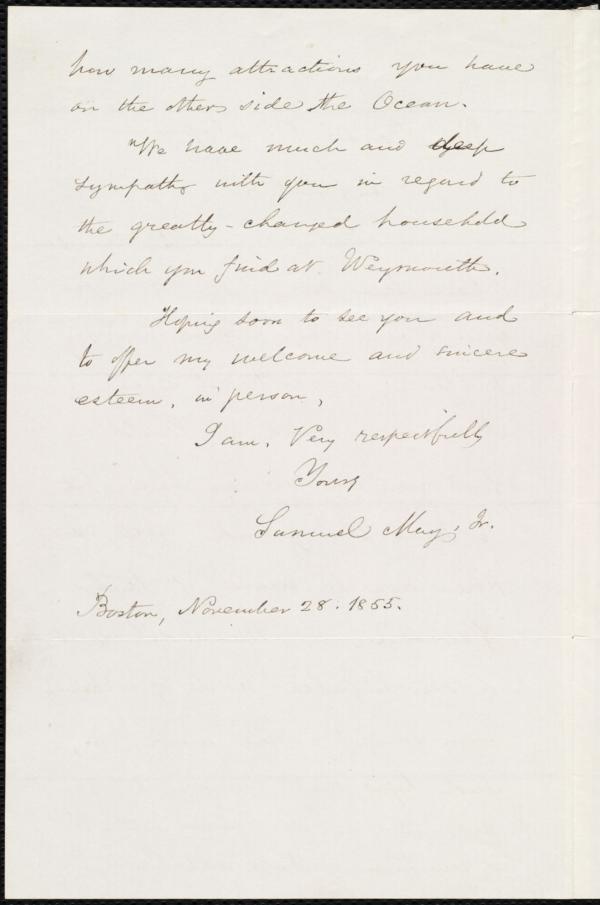 how many attractions you have
on the other side the Ocean.
We have much and deep
sympathy with you in regard to
the greatly-changed household
which you find at Weymouth.
Hoping soon to see you and
to offer my welcome and sincere
esteem, in person,
I am, Very respectfully
Yours
Samuel May, Jr.
Boston, November 28. 1855.